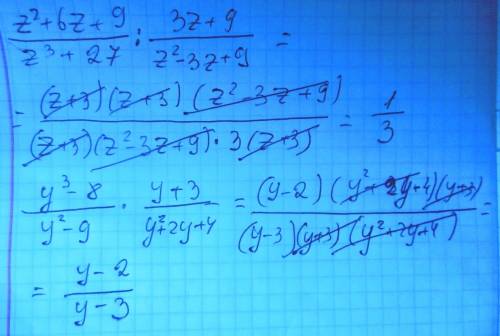 (z²+6z+9)/(z³+27) : (3z+9)/(z²-3z+9) =
= ((z+3)(z+3)(z²-3z+9))/((z+3)(z²-3z+9)·3(z+3)) = 1/3
(y³-8)/(y²-9) · (y+3)/(y²+2y+4) = ((y-2)(y²+2y+4)(y+3))/((y-3)(y+3)(y²+2y+4)) =
= (y-2)/(y-3)